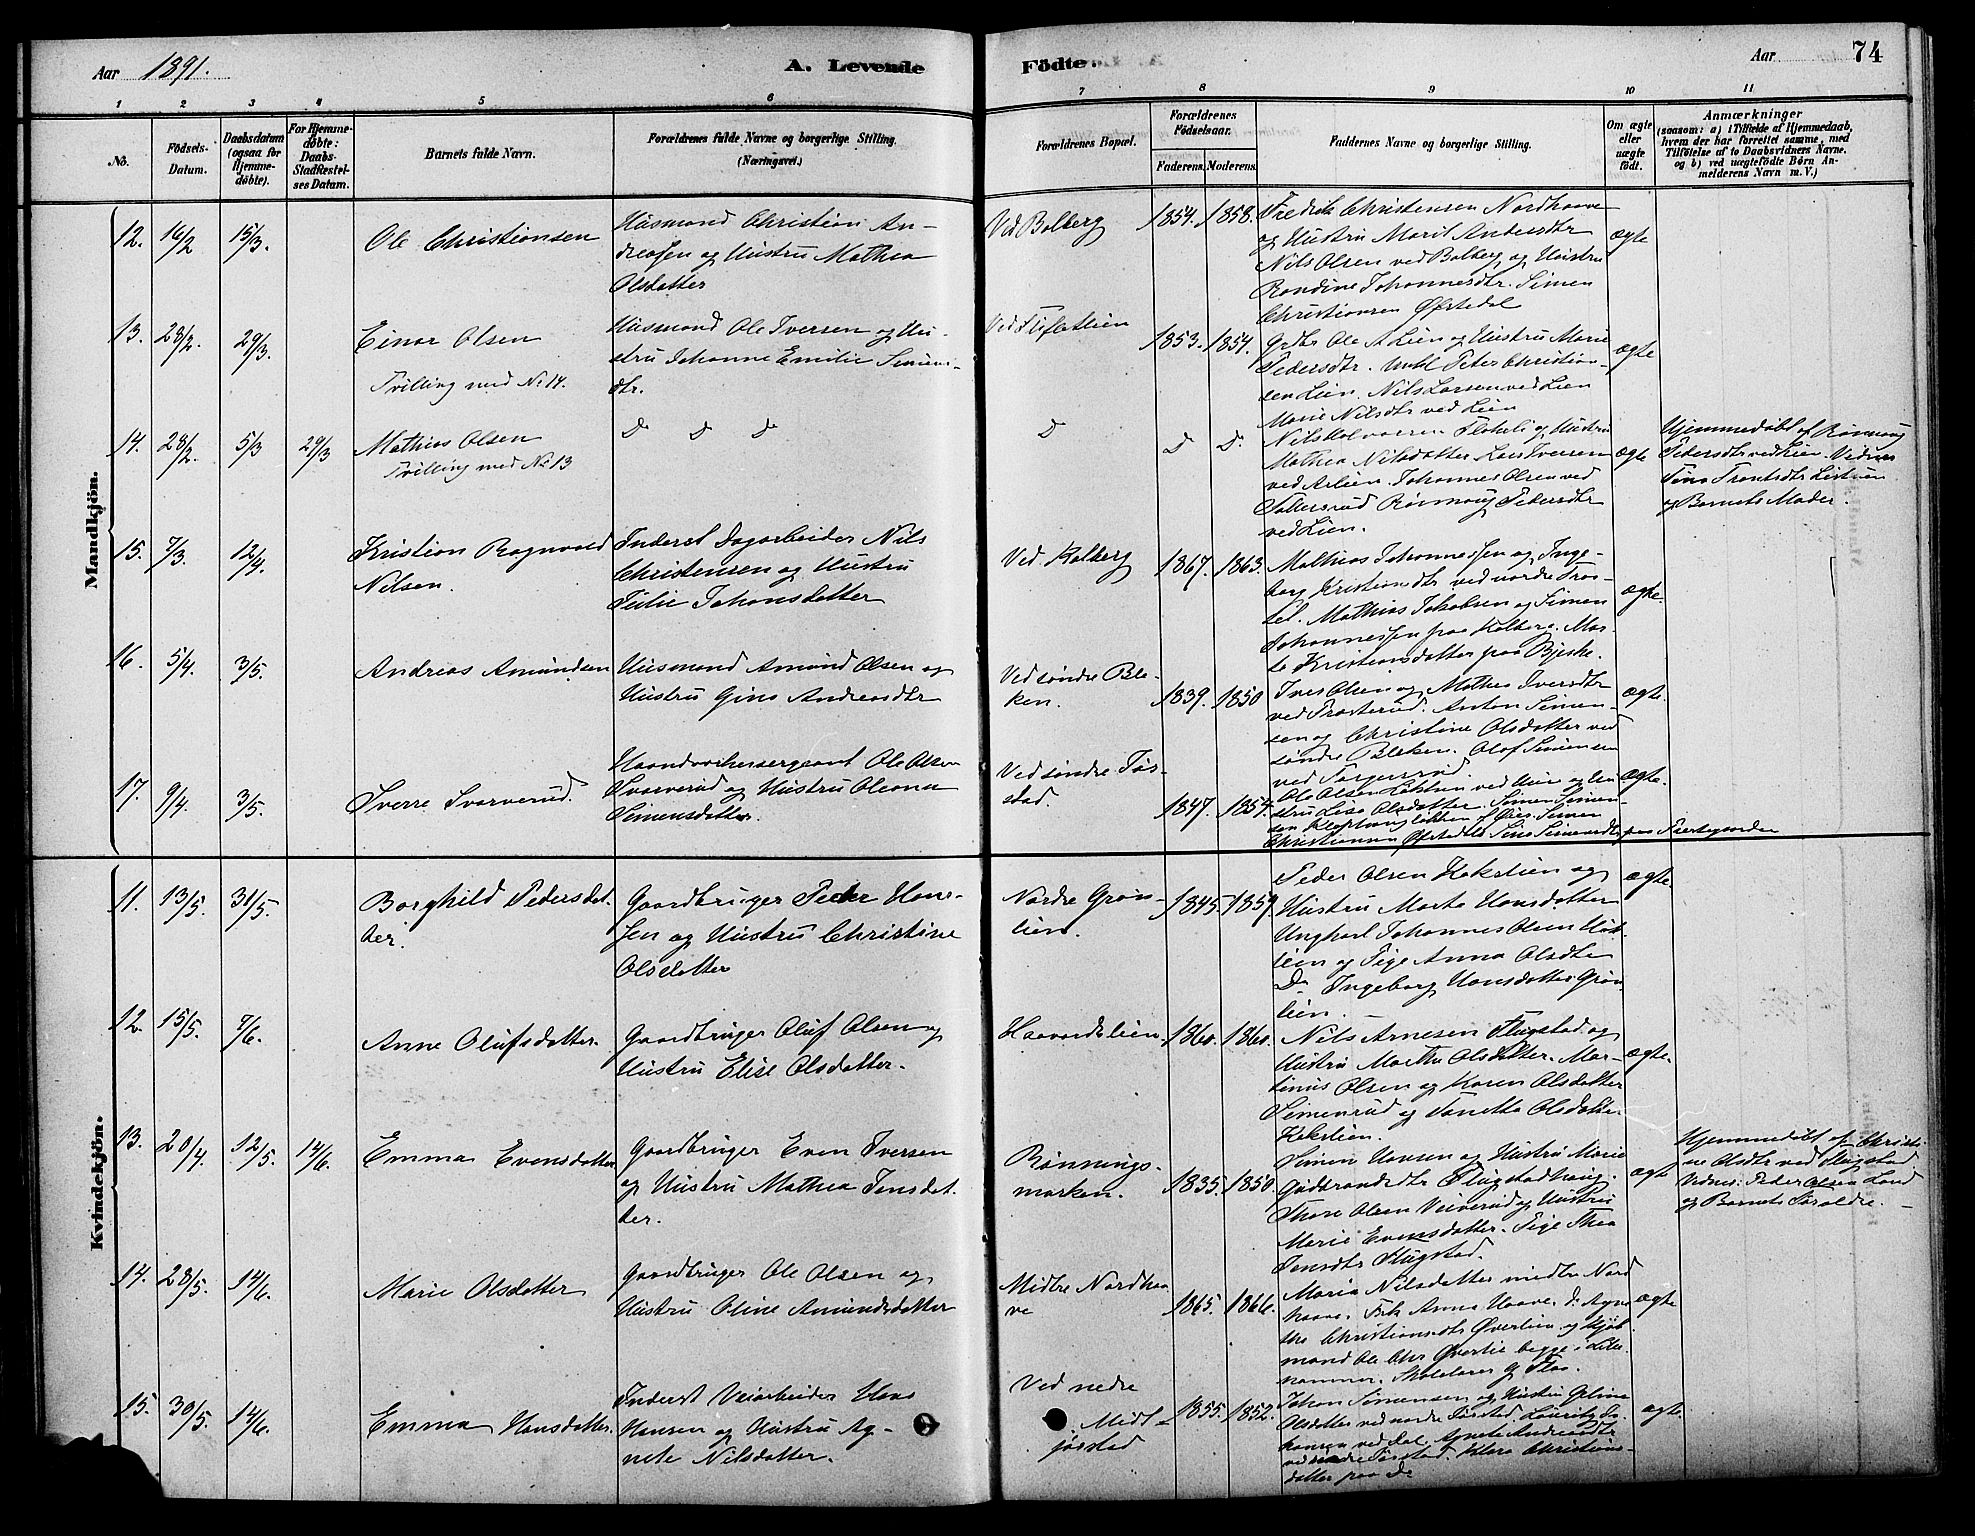 Aar 1891.
A. Levende
Födte.
Aar
74
1 2 3 4 5 6 7 8 9 10 11
No.
Födsels-
Datum.
Daabsdatum
(ogsaa for
Hjemme-
döbte).
For Hjemme-
döbte:
Daabs-
Stadfæstel-
ses Datum.
Barnets fulde Navn.
Forældrenes fulde Navne og borgerlige Stilling.
(Næringsvei.)
Forældrenes Bopæl.
Forældrenes
Födselsaar.
Faderens. Moderens.
Faddernes Navne og borgerlige Stilling.
Om ægte
eller
uægte
födt.
Anmærkninger
(saasom: a) i Tilfælde af Hjemmedaab,
hvem der har forrettet samme, med
Tilföielse af to Daabsvidners Navne,
og b) ved uægtefödte Börn An-
melderens Navn m. V.)
Mandkjön.
12. 14/2 15/3.
Ole Christiansen
Husmand Christian An-
dreasen og Hustru Mathea
Olsdatter
Ved Bolberg
1854. 1858.
Fredrik Christensen Nordhaave
og Hustru Marit Andersdtr
Nils Olsen ved Bolberg og Hustru
Randine Johannesdtr. Simen
Christiansen Østedal
ægte
13. 28/2. 29/3.
Einar Olsen
Tvilling med No 14.
Husmand Ole Iversen og Hu-
stru Johanne Emilie Simens-
dtr.
1853. 1854.
Grdbr Ole A Lien og Hustru Marie
Pedersdtr. Unkl Peter Christian-
sen Lien. Nils Larsen ved Lien
Marie Nilsdtr ved Lien
ægte
14. 28/2 5/3 29/3
Mathias Olsen
Tvilling med No 13
Do Do Do
Do
Do Do
Nils Halvorsen Flakeli og Hustru
Mathea Nilsdatter Lars Iversen
ved Aslien. Johannes Olsen ved
Sollersrud Rønnaug Pedersdtr
ved Lien.
ægte
Hjemmedøbt af Rønnaug
Pedersdtr ved Lien. Vidner
og Barnets Moder.
15. 7/3. 12/4.
Kristian Ragnvald
Nilsen.
Inderst Dagarbeider Nils
Christensen og Hustru
Julie Johansdatter
Ved Kalberg
1867. 1863.
Mathias Johannessen og Inge-
borg Kristiansdtr ved nordre Tros-
sel. Mathias Jakobsen og Simen
Johannessen paa Kolberg. Mar-
te Kristiansdatter paa Bjerke.
ægte.
16. 5/4. 3/5.
Andreas Amundsen
Husmand Amund Olsen og
Hustru Gina Andreasdtr
Ved søndre Ble-
ken.
1839. 1850
Iver Olsen og Mathea Iversdtr
ved Trosterud. Anton Simen-
sen og Christine Olsdatter ved
søndre Bleken. Olof Simensen
ved Torgersrud.
ægte.
17. 9/4. 3/5.
Sverre Svarverud.
Haandverkersergeant Ole Olsen
Svarverud og Hustru Oleana
Simensdatter.
Ved søndre Jør-
stad.
1847. 1854.
stru Lise Olsdatter. Simen Simen-
ægte.
Kvindekjön.
11. 13/5. 31/5.
Borghild Pedersdat-
ter.
Gaardbruger Peder Han-
sen og Hustru Christine
Olsdatter
Nordre Grøn-
lien.
1845. 1859.
Peder Olsen Kokslien og
Hustru Marte Hansdatter
Ungkarl Johannes Olsen Høt-
lien og Pige Anna Olsdtr
Do Ingeborg Hansdatter Grøn-
lien.
ægte.
12. 15/5. 7/6.
Anne Olufsdatter.
Gaardbruger Oluf Olsen og
Hustru Elise Olsdatter.
Haavardslien
1860. 1860.
Nils Arnesen Flugstad og
Hustru Marthe Olsdatter. Mar-
tinus Olsen og Karen Olsdatter
Simenrud og Tonetta Olsdatter
Kokslien.
ægte.
13. 20/4. 12/5. 14/6.
Emma Evensdatter
Gaardbruger Even Iversen
og Hustru Mathea Jensdat-
ter.
Rønnings-
marken.
1835. 1850.
Simen Hansen og Hustru Marie
Gudbrandsdtr Flugstadhaug.
Thore Olsen Veiverud og Hustru
Marie Evensdatter. Pige Thea
Jensdtr Flugstad.
ægte
Hjemmedøbt af Christi-
ne Olsdtr ved Flugstad
Vidner: Peder Olsen Lund
og Barnets Forældre.
14. 28/5. 14/6.
Marie Olsdatter
Gaardbruger Ole Olsen og
Hustru Oline Amundsdatter
Midtre Nordhaa-
ve
1865. 1866.
Maria Nilsdatter midtre Nord
haave. Frk Anna Haave. do Agne
the Christiansdtr Øverlien og Kjøb-
mand Ole Chr Øverlie begge i Lille-
hammer. Skolelærer
ægte
15. 30/5. 14/6.
Emma Hansdatter.
Inderst Veiarbeider Hans
Hansen og Hustru Ag-
nete Nilsdatter.
Ved nedre
Midt-
jørstad
1855. 1852.
Johan Simensen og Hustru Oline
Olsdatter ved nordre Jørstad.
ved nordre Jørstad. Klara Christians-
datter paa Do
ægte.